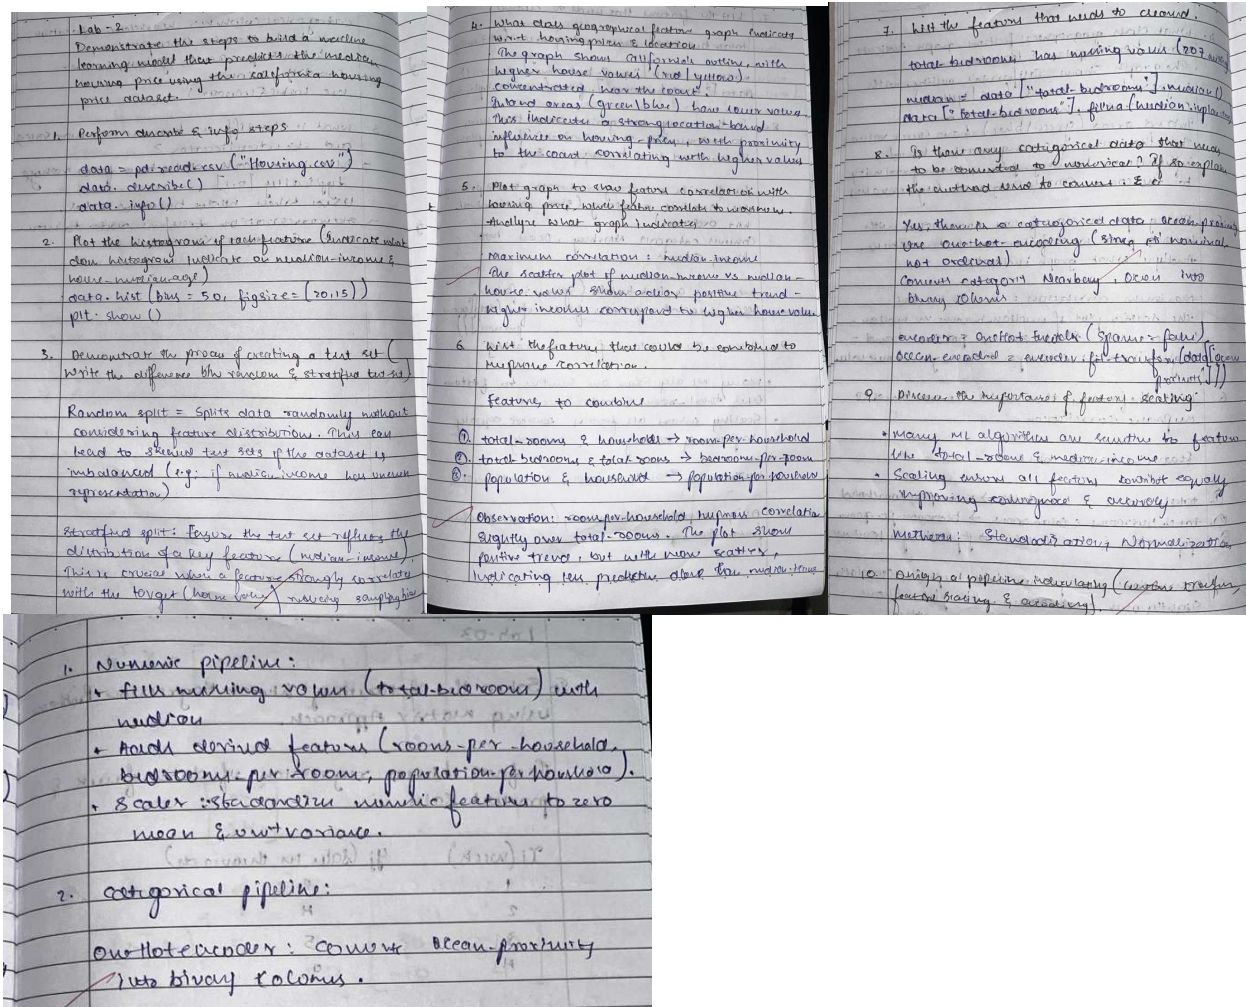 Lab-2
Demonstrate the steps to build a machine
learning model that predicts the median
housing price using the california housing
price dataset.
1. Perform describe & info steps
data = pd.read_csv("Housing.csv")
data.describe()
data.info()
2. Plot the histogram of each feature (indicate what
does histogram indicate on median-income &
house-median-age)
data.hist(bins = 50, figsize = (20,15))
plt.show()
3. Demonstrate the process of creating a test set (
write the difference b/w random & stratified test set)
Random split = Splits data randomly without
considering feature distribution. This can
lead to skewed test sets if the dataset is
imbalanced (e.g: if median income has uneven
representation)
Stratified split: Ensure the test set reflects the
distribution of a key feature (median-income).
This is crucial when a feature strongly correlates
with the target (house value) reducing sampling bias
4. What does geographical feature graph indicate
w.r.t housing prices & location
The graph shows California's outline, with
higher house values (red/yellow)
concentrated near the coast.
Inland areas (green/blue) have lower values
This indicates a strong location-based
influence on housing-prices, with proximity
to the coast correlating with higher values
5. Plot graph to show feature correlation with
housing price, which feature correlates to maximum.
Analyze what graph indicates
Maximum correlation: median-income
The scatter plot of median-income vs median-
house values shows a clear positive trend -
higher incomes correspond to higher house values
6. List the features that could be combined to
improve correlation.
features to combine
①. total-rooms & households → room-per-household
②. total-bedrooms & total rooms → bedrooms-per-room
③. population & household → population-per-household
Observation: room-per-household improves correlation
slightly over total-rooms. The plot shows
positive trend, but with more scatter,
indicating less predictive alone than median-income
7. List the features that needs to cleaned.
total-bedrooms has missing values (207
median = data["total-bedrooms"].median()
data["total-bedrooms"].fillna(median, inplace
8. Is there any categorical data that needs
to be converted to numerical? If so explain
the method used to convert
Yes, there is a categorical data: ocean-proximity
Use one-hot-encoding (since it's nominal,
not ordinal)
Converts category Near bay, Ocean into
binary columns
encoder = OneHotEncoder(sparse = false)
ocean-encoded = encoder.fit-transform(data[["ocean
proximity"]])
9. Discuss the importance of feature scaling
• Many ML algorithms are sensitive to feature
like total-rooms & median-income
• Scaling ensures all features contribute equally
improving convergence & accuracy
Methods: Standardization, Normalization
10. Design a pipeline including (custom transform,
feature scaling & encoding).
1. Numeric pipeline:
• fills missing values (total-bedrooms) with
median
• Adds derived features (rooms-per-household,
bedrooms-per-room, population-per-household).
• Scaler: standardizes numeric features to zero
mean & unit variance.
2. Categorical pipeline:
OneHotencoder: Converts Ocean-proximity
into binary columns.